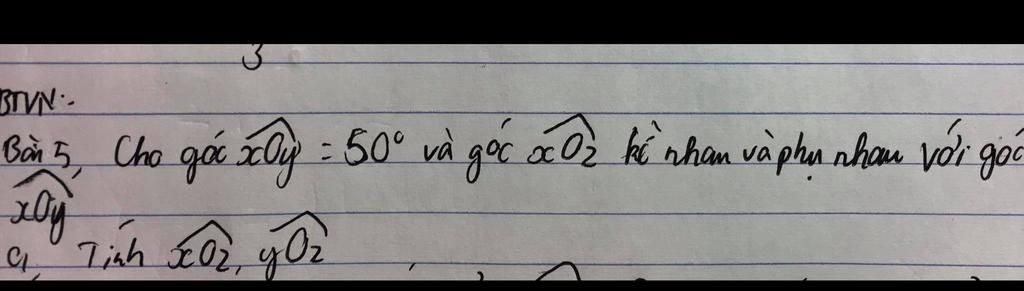 3
BTVN:
Bài 5, Cho góc xOy = 50° và góc xOz kề nhau và phụ nhau với góc
xOy
a, Tính xOz, yOz